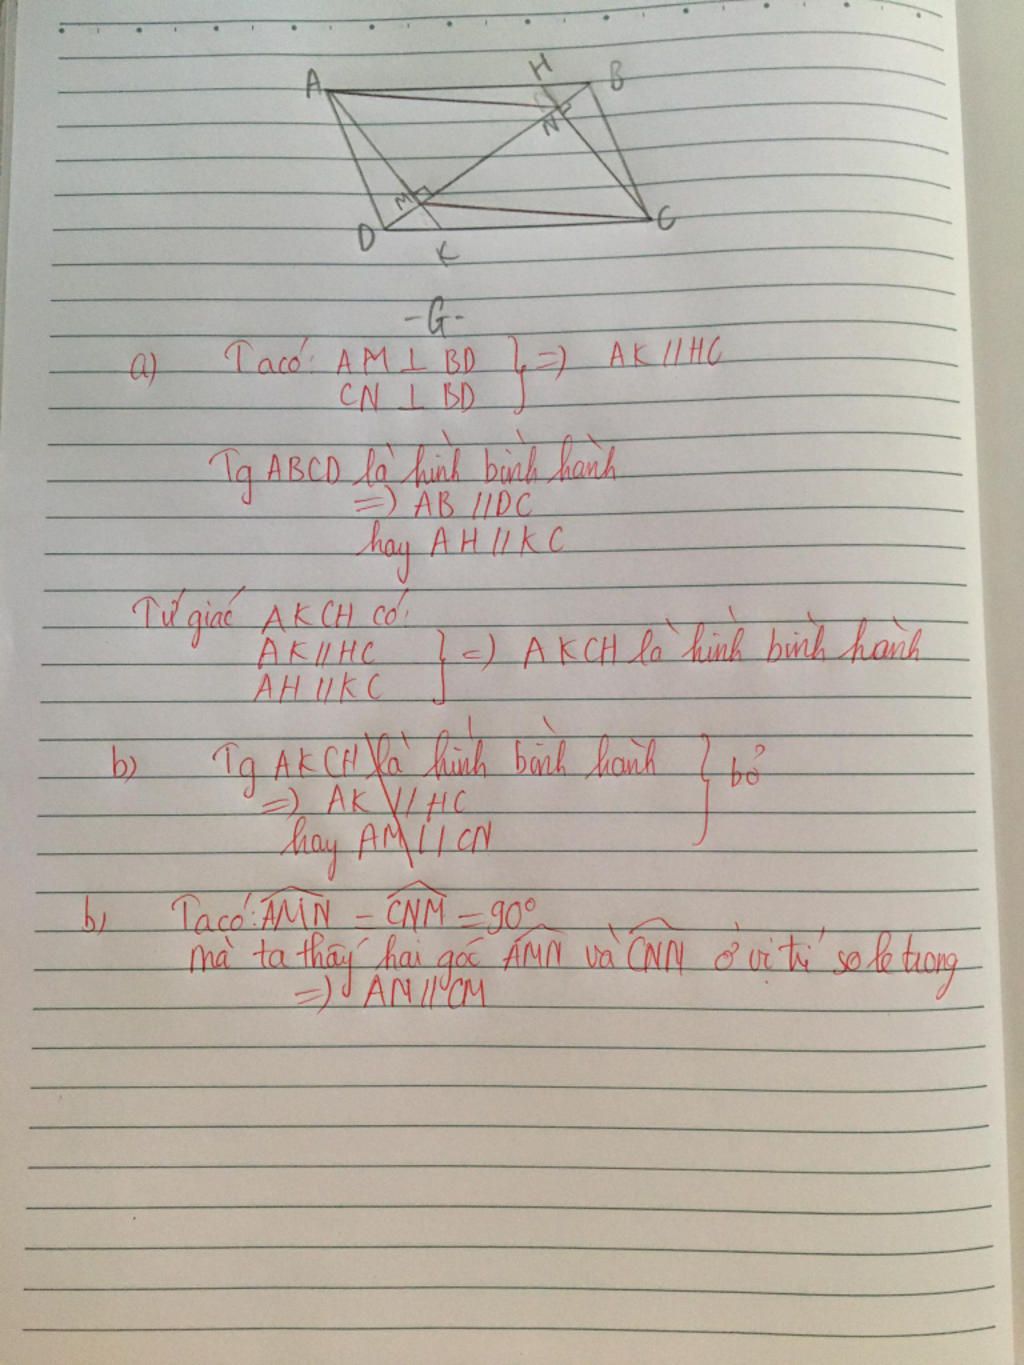 A H B
N
M
D K C
-G-
a) Ta có: AM ⊥ BD } => AK // HC
CN ⊥ BD
Tg ABCD là hình bình hành
=> AB // DC
hay AH // KC
Tứ giác AKCH có:
AK // HC } => AKCH là hình bình hành
AH // KC
b) Tg AKCH là hình bình hành } bỏ
=> AK // HC
hay AM // CN
b) Ta có: AMN = CNM = 90°
mà ta thấy hai góc AMN và CNM ở vị trí so le trong
=> AN // CM